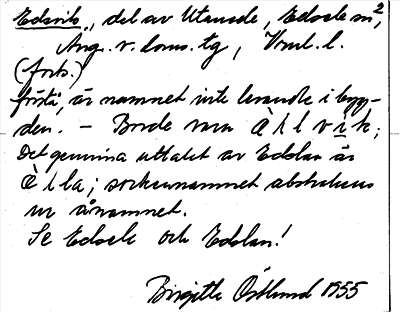 Edsvik, del av Utanede, Edsele sn, 2
Ång. v. doms. tg, Vnl. l.
(forts.)
förstå, är namnet inte levande i byg-
den. – Borde vara È l l v i k;
Det genuina uttalet av Edslan är
È l l a; sockennamnet abstraheras
ur ånamnet.
Se Edsele och Edslan!
Birgitta Östlund 1955